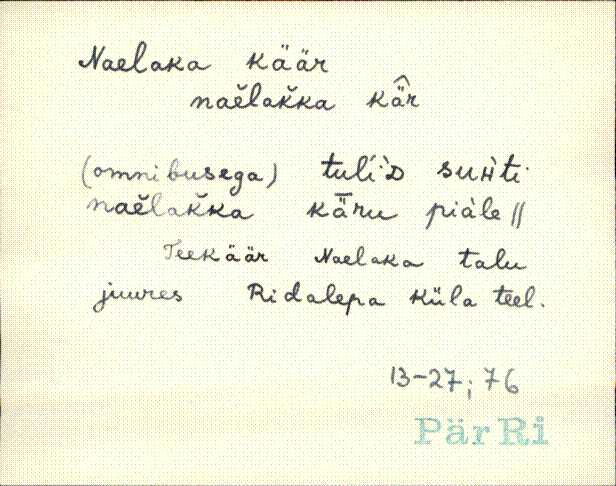 Naelaka käär
naĕlak̆ka kä̂r
(omnibusega) tuĺìᴅ suʜ̀ti
naĕlak̆ka kǟru piàle ||
Teekäär Naelaka talu
juures Ridalepa küla teel.
13-27; 76
PärRi